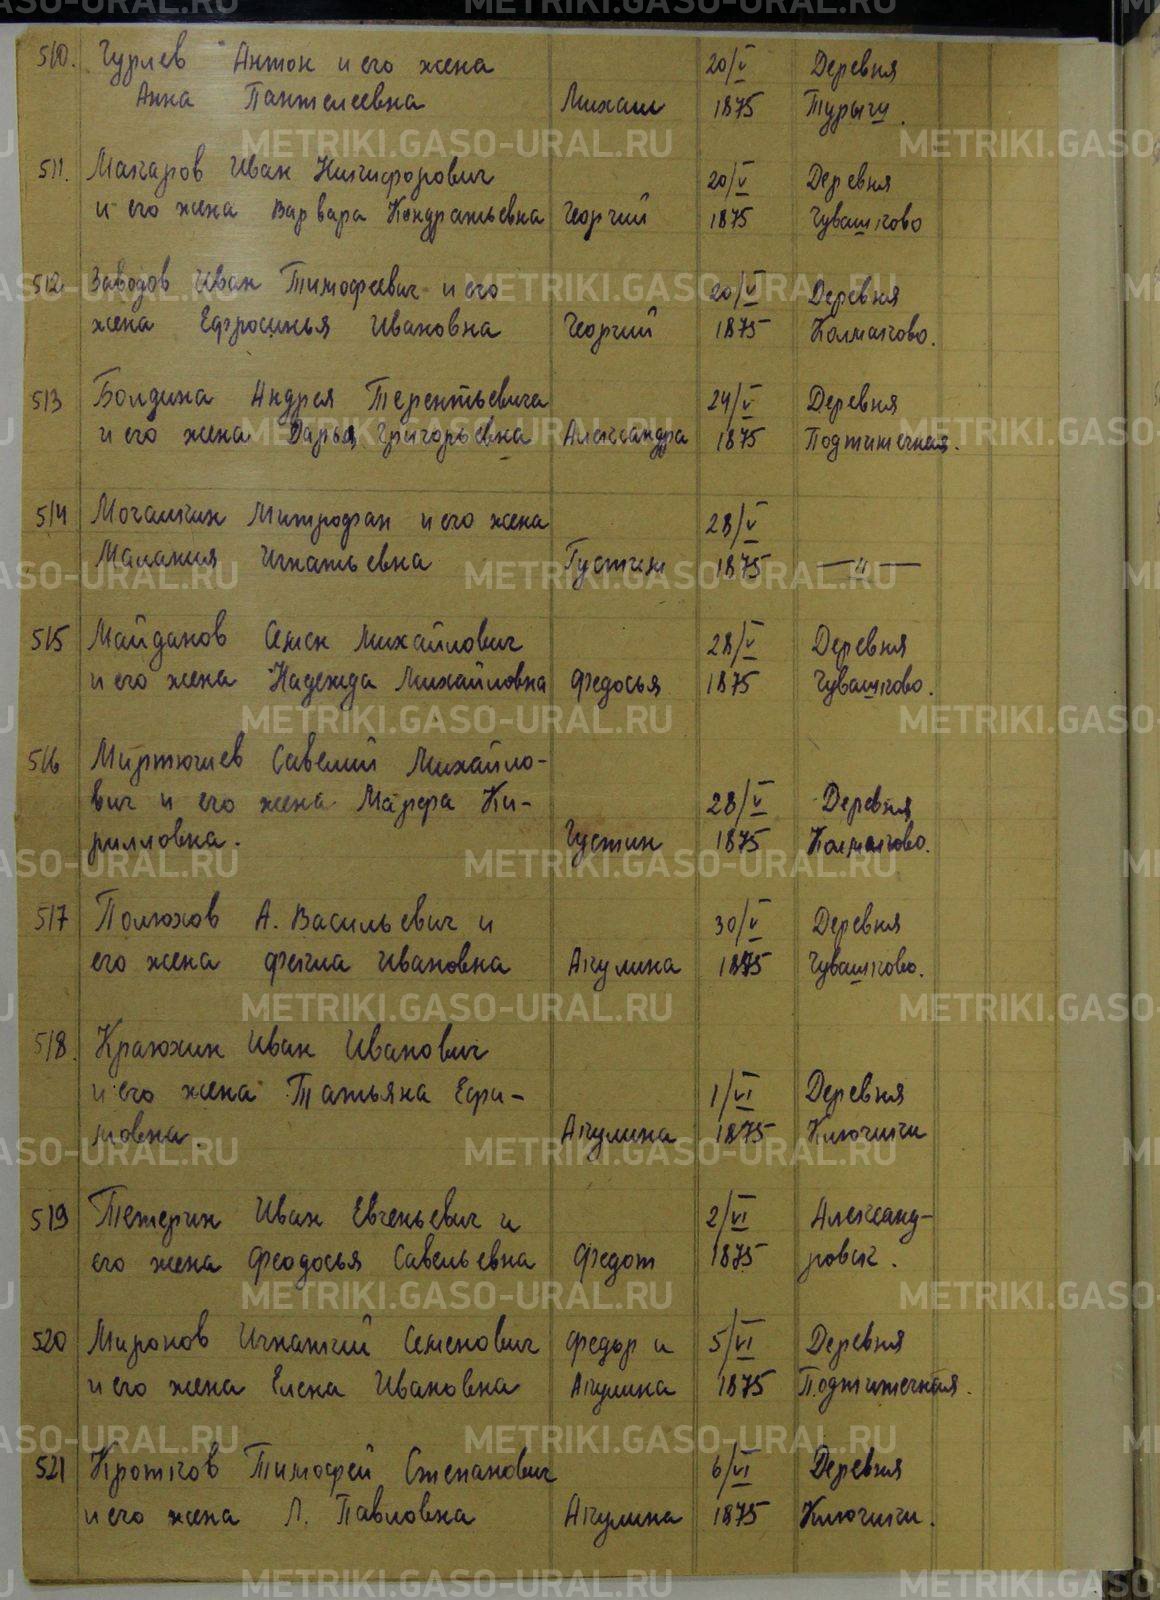 510. Гурлев Антон и его жена 20/V Деревня
Анна Пантелеевна Михаил 1875 Турыш.
511. Макаров Иван Никифорович 20/V Деревня
и его жена Варвара Кондратьевна Георгий 1875 Чувашково
512 Заводов Иван Тимофеевич и его 20/V Деревня
жена Ефросинья Ивановна Георгий 1875 Колмаково.
513 Болдина Андрея Терентьевича 24/V Деревня
и его жена Дарья Григорьевна Александра 1875 Подтитечная.
514 Мочалкин Митрофан и его жена 28/V
Малания Игнатьевна Густин 1875 —"—
515 Майданов Семен Михайлович 28/V Деревня
и его жена Надежда Михайловна Федосья 1875 Чувашково.
516 Миртюшев Савелий Михайло-
вич и его жена Марфа Ки- 28/V Деревня
рилловна. Густин 1875 Колмаково.
517 Полюхов А. Васильевич и 30/V Деревня
его жена Фекла Ивановна Акулина 1875 Чувашково.
518. Краюхин Иван Иванович
и его жена Татьяна Ефи- 1/VI Деревня
мовна. Акулина 1875 Ключики
519 Тетерин Иван Евгеньевич и 2/VI Александ-
его жена Феодосья Савельевна Федот 1875 ровск.
520 Миронов Игнатий Семенович Федор и 5/VI Деревня
и его жена Елена Ивановна Акулина 1875 Подтитечная.
521 Кротков Тимофей Степанович 6/VI Деревня
и его жена Л. Павловна Акулина 1875 Ключики.
METRIKI.GASO-URAL.RU